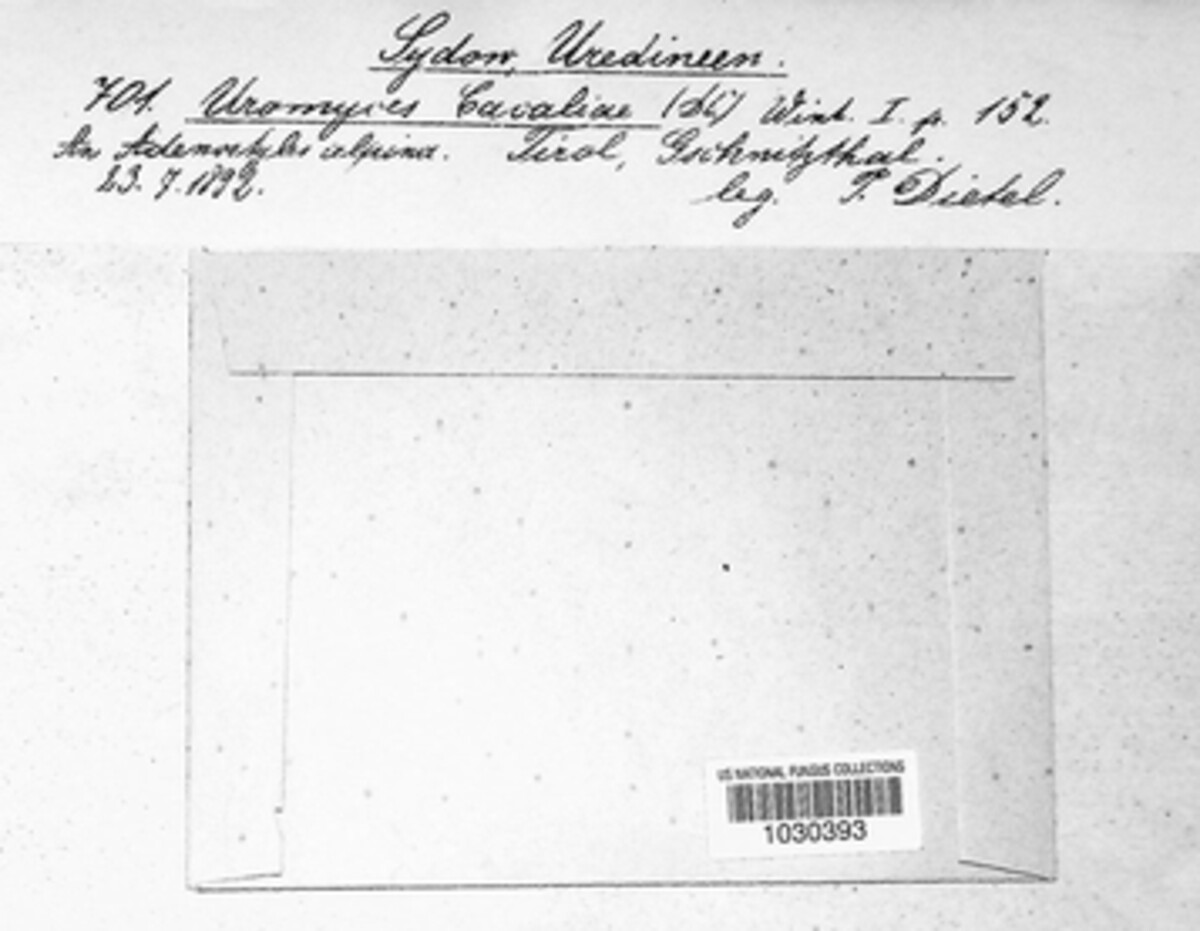 Sydow, Uredineen.
701. Uromyces Cacaliae (DC) Wint. I. p. 152.
An Adenostyles alpina. Tirol, Gschnitzthal.
23. 7. 1892. leg. P. Dietel.
US NATIONAL FUNGUS COLLECTIONS
1030393